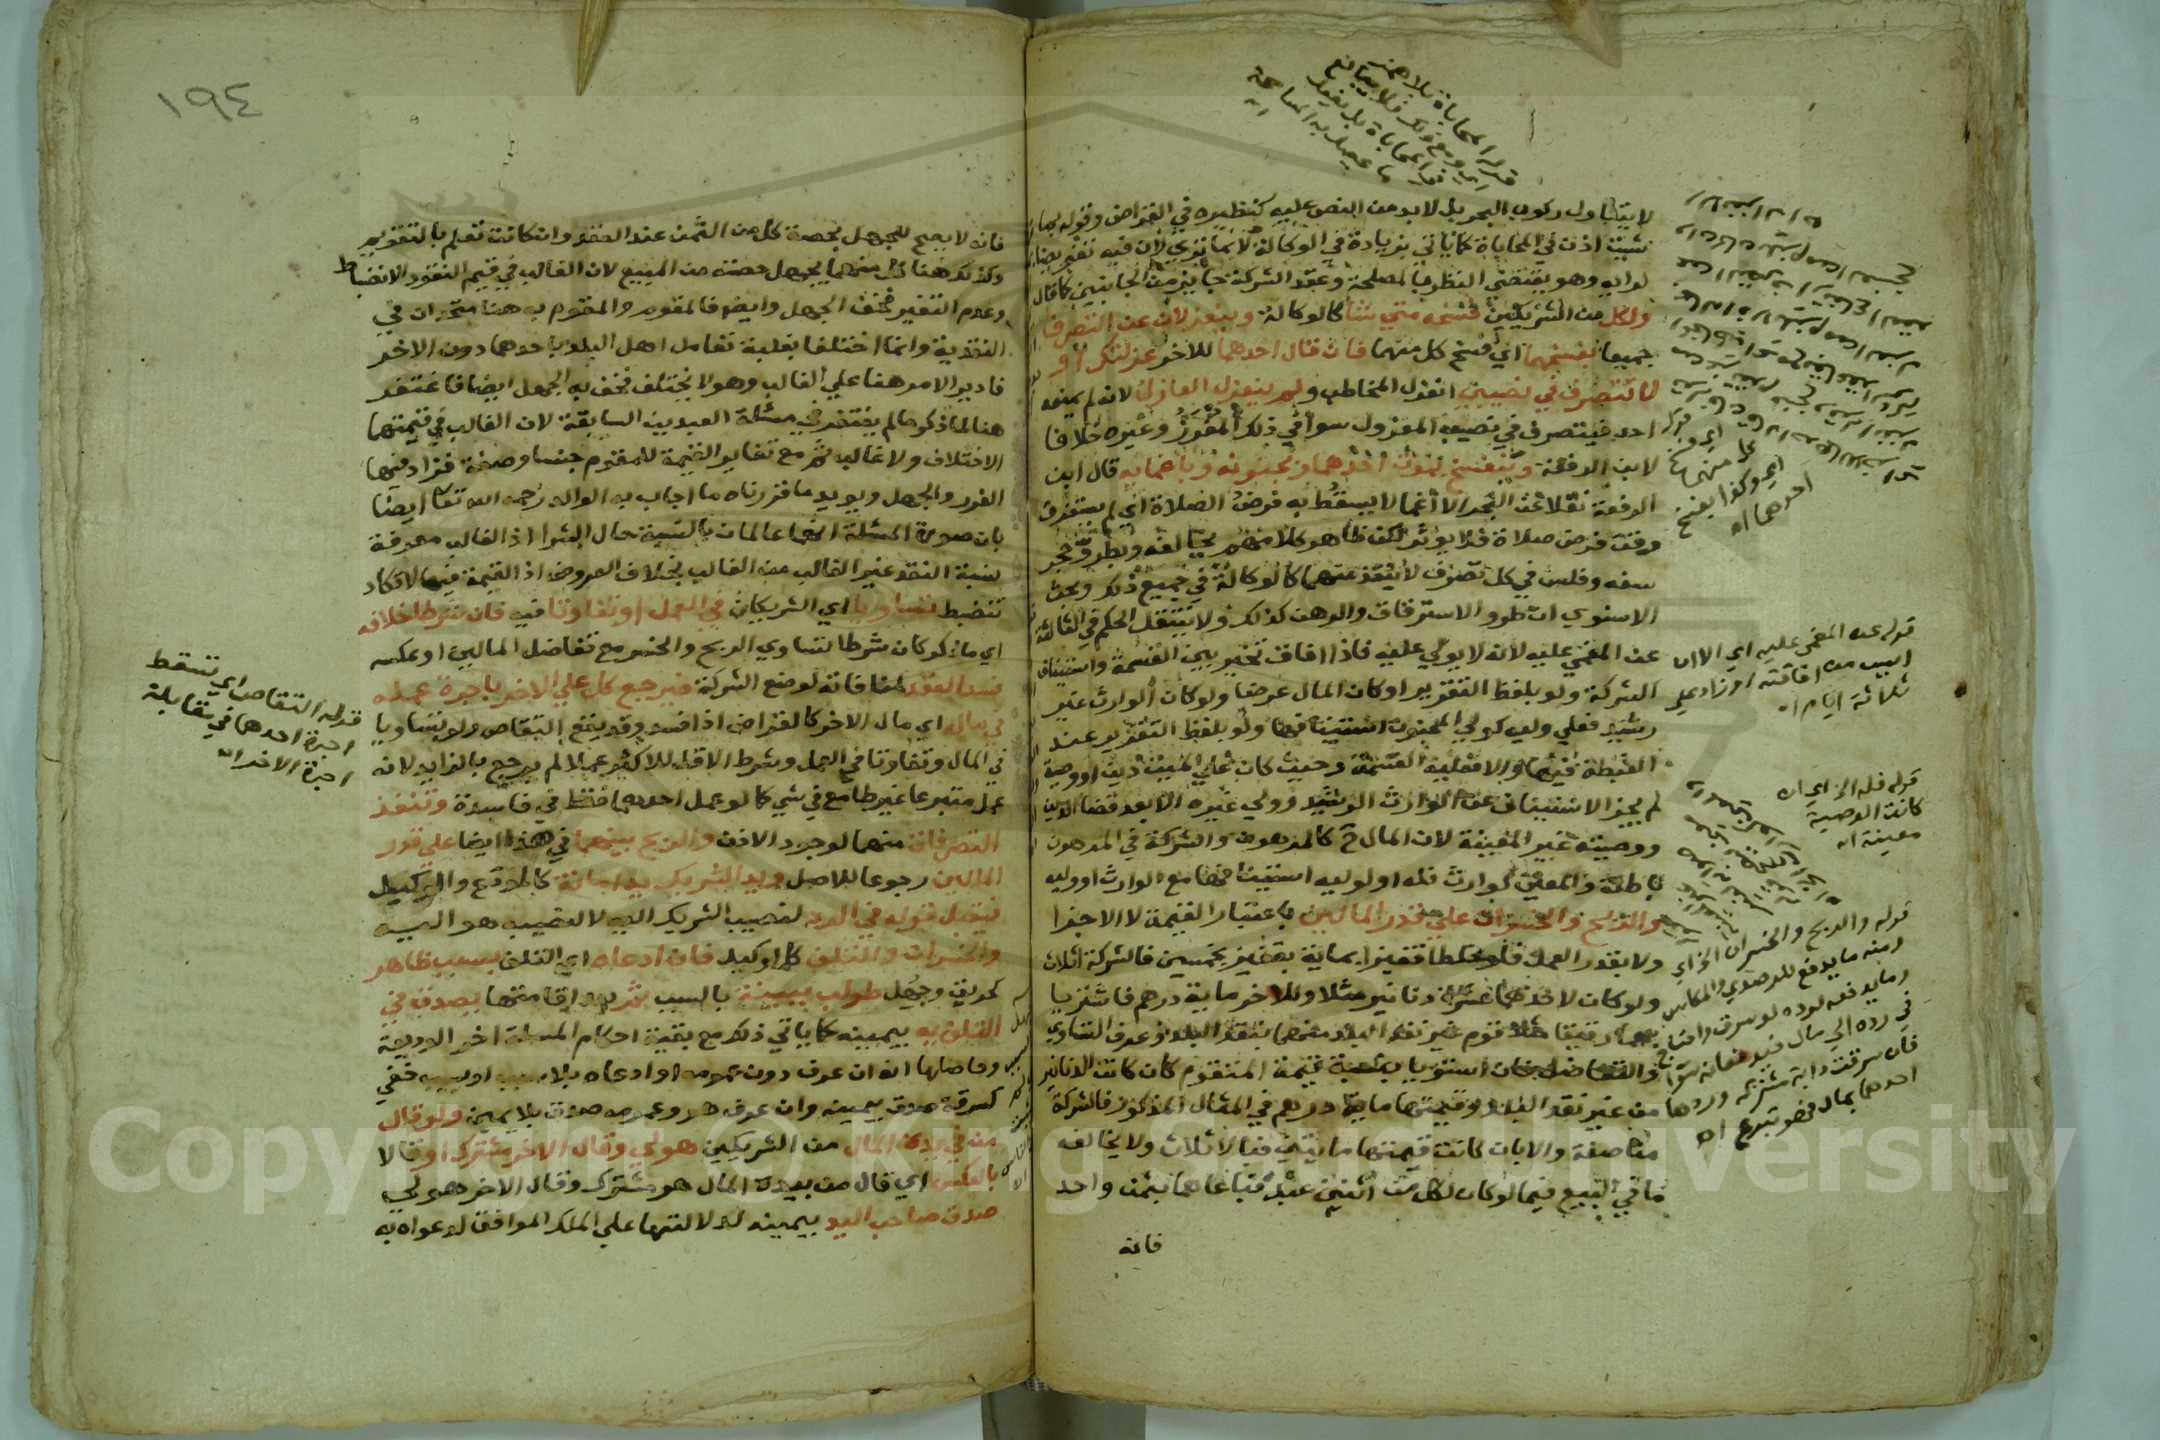 لا يتناول ركوب البحر بل لا بد من النص عليه كنظيره في القراض وقوله بما
شيت اذن في المحاباة كما ياتي بزيادة في الوكالة لا بما تري لان فيه تفويضا
لرايه وهو يقتضي النظر بالمصلحة وعقد الشركة جايز من الجانبين كما قال
ولكل من الشريكين فسخه متي شا كالوكالة وينعزلان عن التصرف
جميعا بفسخهما اي فسخ كل منهما فان قال احدهما للاخر عزلتك او
لا تتصرف في نصيبي انعزل المخاطب ولم ينعزل العازل لانه لم يمنعه
احد فيتصرف في نصيب المعزول سوا في ذلك المفوز وغيره خلافا
لابن الرفعة وتنفسخ بموت احدهما وبجنونه وباغمايه قال ابن
الرفعة نقلا عن البحر الا اغما لا يسقط به فرض الصلاة اي لم يستغرق
وقت فرض صلاة فلا يوثر لكن ظاهر كلامهم يخالفه وبطرو حجر
سفه وفلس في كل تصرف لا ينفذ منهما كالوكالة في جميع ذلك وبحث
الاسنوي ان طرو الاسترقاق والرهن كذلك ولا ينتقل الحكم في الثالثة
عن المغمي عليه لانه لا يولي عليه فاذا افاق تخير بين القسمة واستيناف
الشركة ولو بلفظ التقرير او كان المال عرضا ولو كان الوارث غير
رشيد فعلي وليه كولي المجنون استينافها ولو بلفظ التقرير عند
الغبطة فيها والا فعليه القسمة وحيث كان علي الميت دين او وصية
لم يجز الاستيناف من الوارث الرشيد وولي غيره الا بعد قضا الدين
ووصية غير المعينة لان المال ح كالمرهون والشركة في المرهون
باطلة والمعين كوارث فله او لوليه استينافها مع الوارث او وليه
والربح والخسران علي قدر المالين باعتبار القيمة لا الاجزا
ولا بقدر العمل فلو خلطا قفيزا بماية بقفيز بخمسين فالشركة اثلاث
ولو كان لاحدهما عشرة دنانير مثلا وللاخر ماية درهم فاشتريا
بهما رقيقا مثلا قوم غير نقد البلد منهما بنقد البلد وعرف التساوي
والتفاضل فان استويا بنسبة قيمة المتقوم كان كانت الدنانير
من غير نقد البلد وقيمتها ماية درهم في المثال المذكور فالشركة
مناصفة والا بان كانت قيمتها مايتين فبالاثلاث ولا يخالفه
ما في البيع فيما لو كان لكل من اثنين عبد فباعاهما بثمن واحد
فانه
قوله المحاباة
قوله عن المغمي عليه اي الا ان
ايس من افاقته او زاد علي
ثلاثة ايام اه
قوله فله الخ اي ان
كانت الوصية
معينة اه
قوله والربح والخسران الخ اي
ومنه ما يدفع للرصدي والمكاس
وما يدفعه لرده لو سرق
في رده الي مال
فان سرقت دابة مشتركة وردها
احدهما بمال فهو متبرع اه
اي وكذا بفسخ
احدهما اه
١٩٤
فانه لا يصح للجهل بحصة كل من الثمن عند العقد وان كانت تعلم بالتقويم
وكذلك هنا كل منهما يجهل حصته من المبيع لان الغالب في قيم النقود الانضباط
وعدم التغير فخف الجهل وايضا فالمقوم والمقوم به هنا متحدان في
النقدية وانما اختلفا بغلبة تعامل اهل البلد باحدهما دون الاخر
فادير الامر هنا علي الغالب وهو لا يختلف فخف به الجهل ايضا فاغتفر
هنا لما ذكر ما لم يغتفر في مسئلة العبدين السابقة لان الغالب في قيمتهما
الاختلاف ولا غالب ثم مع تغاير القيمة للمقوم جنسا وصفة فزاد فيها
الغرر والجهل ويويد ما قررناه ما اجاب به الوالد رحمه الله تعا ايضا
بان صورة المسئلة انهما عالمان بالنسبة حال الشرا اذ الغالب معرفة
نسبة النقد غير الغالب من الغالب بخلاف العروض اذ القيمة فيها لا تكاد
تنضبط تساويا اي الشريكان في العمل او تفاوتا فيه فان شرطا خلافه
اي ما ذكر كان شرطا تساوي الربح والخسر مع تفاضل المالين او عكسه
فسد العقد لمنافاته لوضع الشركة فيرجع كل علي الاخر باجرة عمله
في ماله اي مال الاخر كالقراض اذا فسد وقد يقع التقاص ولو تساويا
في المال وتفاوتا في العمل وشرط الاقل للاكثر عملا لم يرجع بالزايد لانه
عمل متبرعا غير طامع في شي كما لو عمل احدهما فقط في فاسدة وتنفذ
التصرفات منهما لوجود الاذن والربح بينهما في هذا ايضا علي قدر
المالين رجوعا للاصل ويد الشريك يد امانة كالمودع والوكيل
فيقبل قوله في الرد لنصيب الشريك اليه لا لنصيبه هو اليه
والخسران والتلف كالوكيل فان ادعاه اي التلف بسبب ظاهر
كحريق وجهل طولب ببينة بالسبب ثم بعد اقامتها يصدق في
التلف به بيمينه كما ياتي ذلك مع بقية احكام المسئلة اخر الوديعة
وحاصلها انه ان عرف دون عمومه او ادعاه بلا سبب او بسبب خفي
كسرقة صدق بيمينه وان عرف هو وعمومه صدق بلا يمين ولو قال
من في يده المال من الشريكين هو لي وقال الاخر مشترك او قالا
بالعكس اي قال من بيده المال هو مشترك وقال الاخر هو لي
صدق صاحب اليد بيمينه لدلالتها علي الملك الموافق لدعواه به
قوله التقاص اي تسقط
اجرة احدهما في مقابلة
اجرة الاخر اه
Copyright © King Saud University